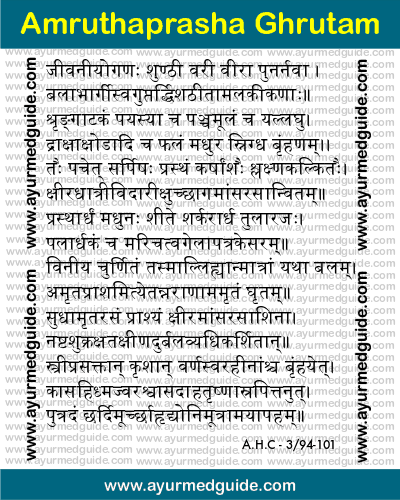 Amruthaprasha Ghrutam
जीवनीयोगणः शुण्ठी वरी वीरा पुनर्नवा ।
बलाभार्गीस्वगुप्तर्द्धिशठीतामलकीकणाः॥
श्रृङ्गाटकं पयस्या च पञ्चमूलं च यल्लघु।
द्राक्षाक्षोडादि च फलं मधुर स्निग्ध बृंहणम्॥
तैः पचेत् सर्पिषः प्रस्थं कर्षांशैः श्लक्ष्णकल्कितैः।
क्षीरधात्रीविदारीक्षुच्छागमांसरसान्वितम्॥
प्रस्थार्धं मधुनः शीते शर्करार्ध तुलारजः।
पलार्धकं च मरिचत्वगेलापत्रकेसरम्॥
विनीय चुर्णितं तस्माल्लिह्यान्मात्रां यथा बलम्।
अमृतप्राशमित्येतन्नराणाममृतं घृतम्॥
सुधामृतरसं प्राश्यं क्षीरमांसरसाशिना।
नष्टशुक्रक्षतक्षीणदुर्बलव्यधिकर्शितान्॥
स्त्रीप्रसक्तान् कृशान् वर्णस्वरहीनांश्च बृंहयेत्।
कासहिध्मज्वरश्वासदाहतृष्णास्रपित्तनुत्।
पुत्रदं छर्दिमूर्च्छाहृद्योनिमूत्रामयापहम्॥
A.H.C - 3/94-101
www.ayurmedguide.com
www.ayurmedguide.com
www.ayurmedguide.com
www.ayurmedguide.com
www.ayurmedguide.com